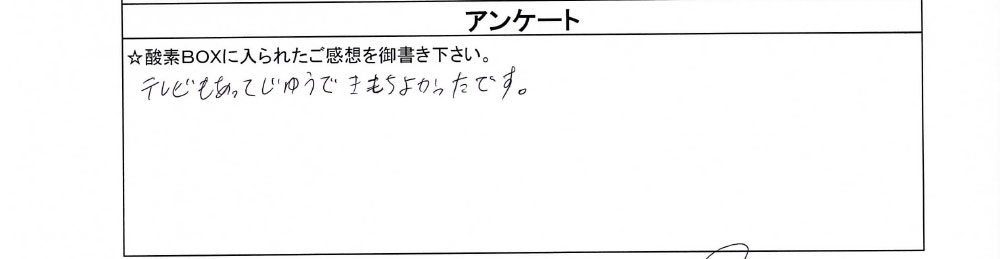 アンケート
☆酸素BOXに入られたご感想を御書き下さい。
テレビもあってじゆうで きもちよかったです。